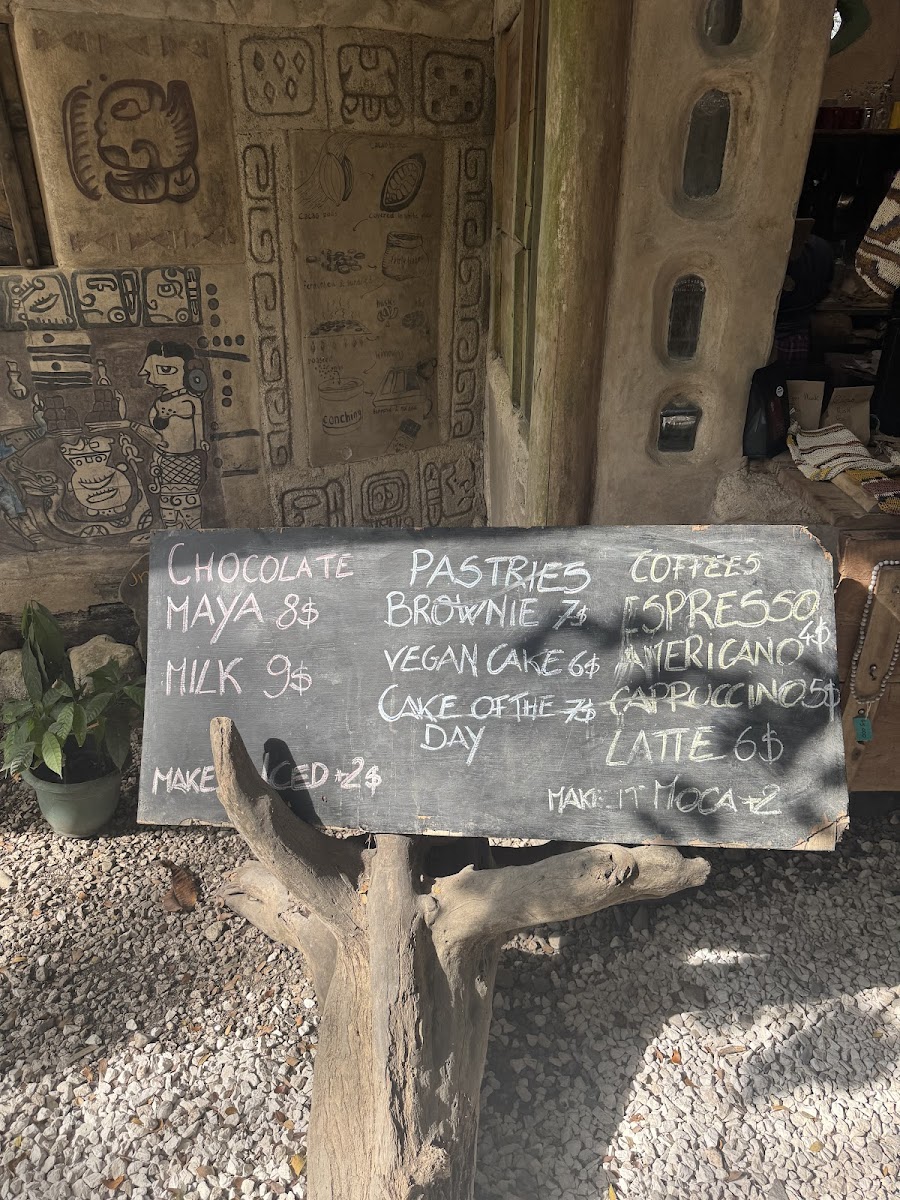 CHOCOLATE
MAYA 8$
MILK 9$
MAKE ICED +2$
PASTRIES
BROWNIE 7$
VEGAN CAKE 6$
CAKE OF THE 7$
DAY
COFFEES
ESPRESSO
4$
AMERICANO
CAPPUCCINO 5$
LATTE 6$
MAKE IT MOCA +2
conching